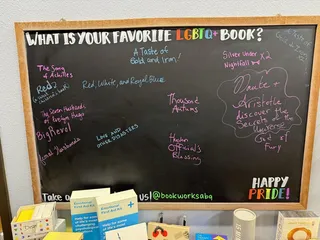 WHAT IS YOUR FAVORITE LGBTQ+ BOOK?
A Taste of
Gold and Iron!
The Song
of Achilles
Silver Under x2
Nightfall
Red, White, and Royal Blue
The Seven Husbands
of Evelyn Hugo
Big Reveal
Thousand
Autumns
Love and
other disasters
Heaven
Officials
Blessing
Aristotle
discover the
Secrets of the
Universe
God of
Fury
HAPPY
PRIDE!
Take a
us! @bookworksabq